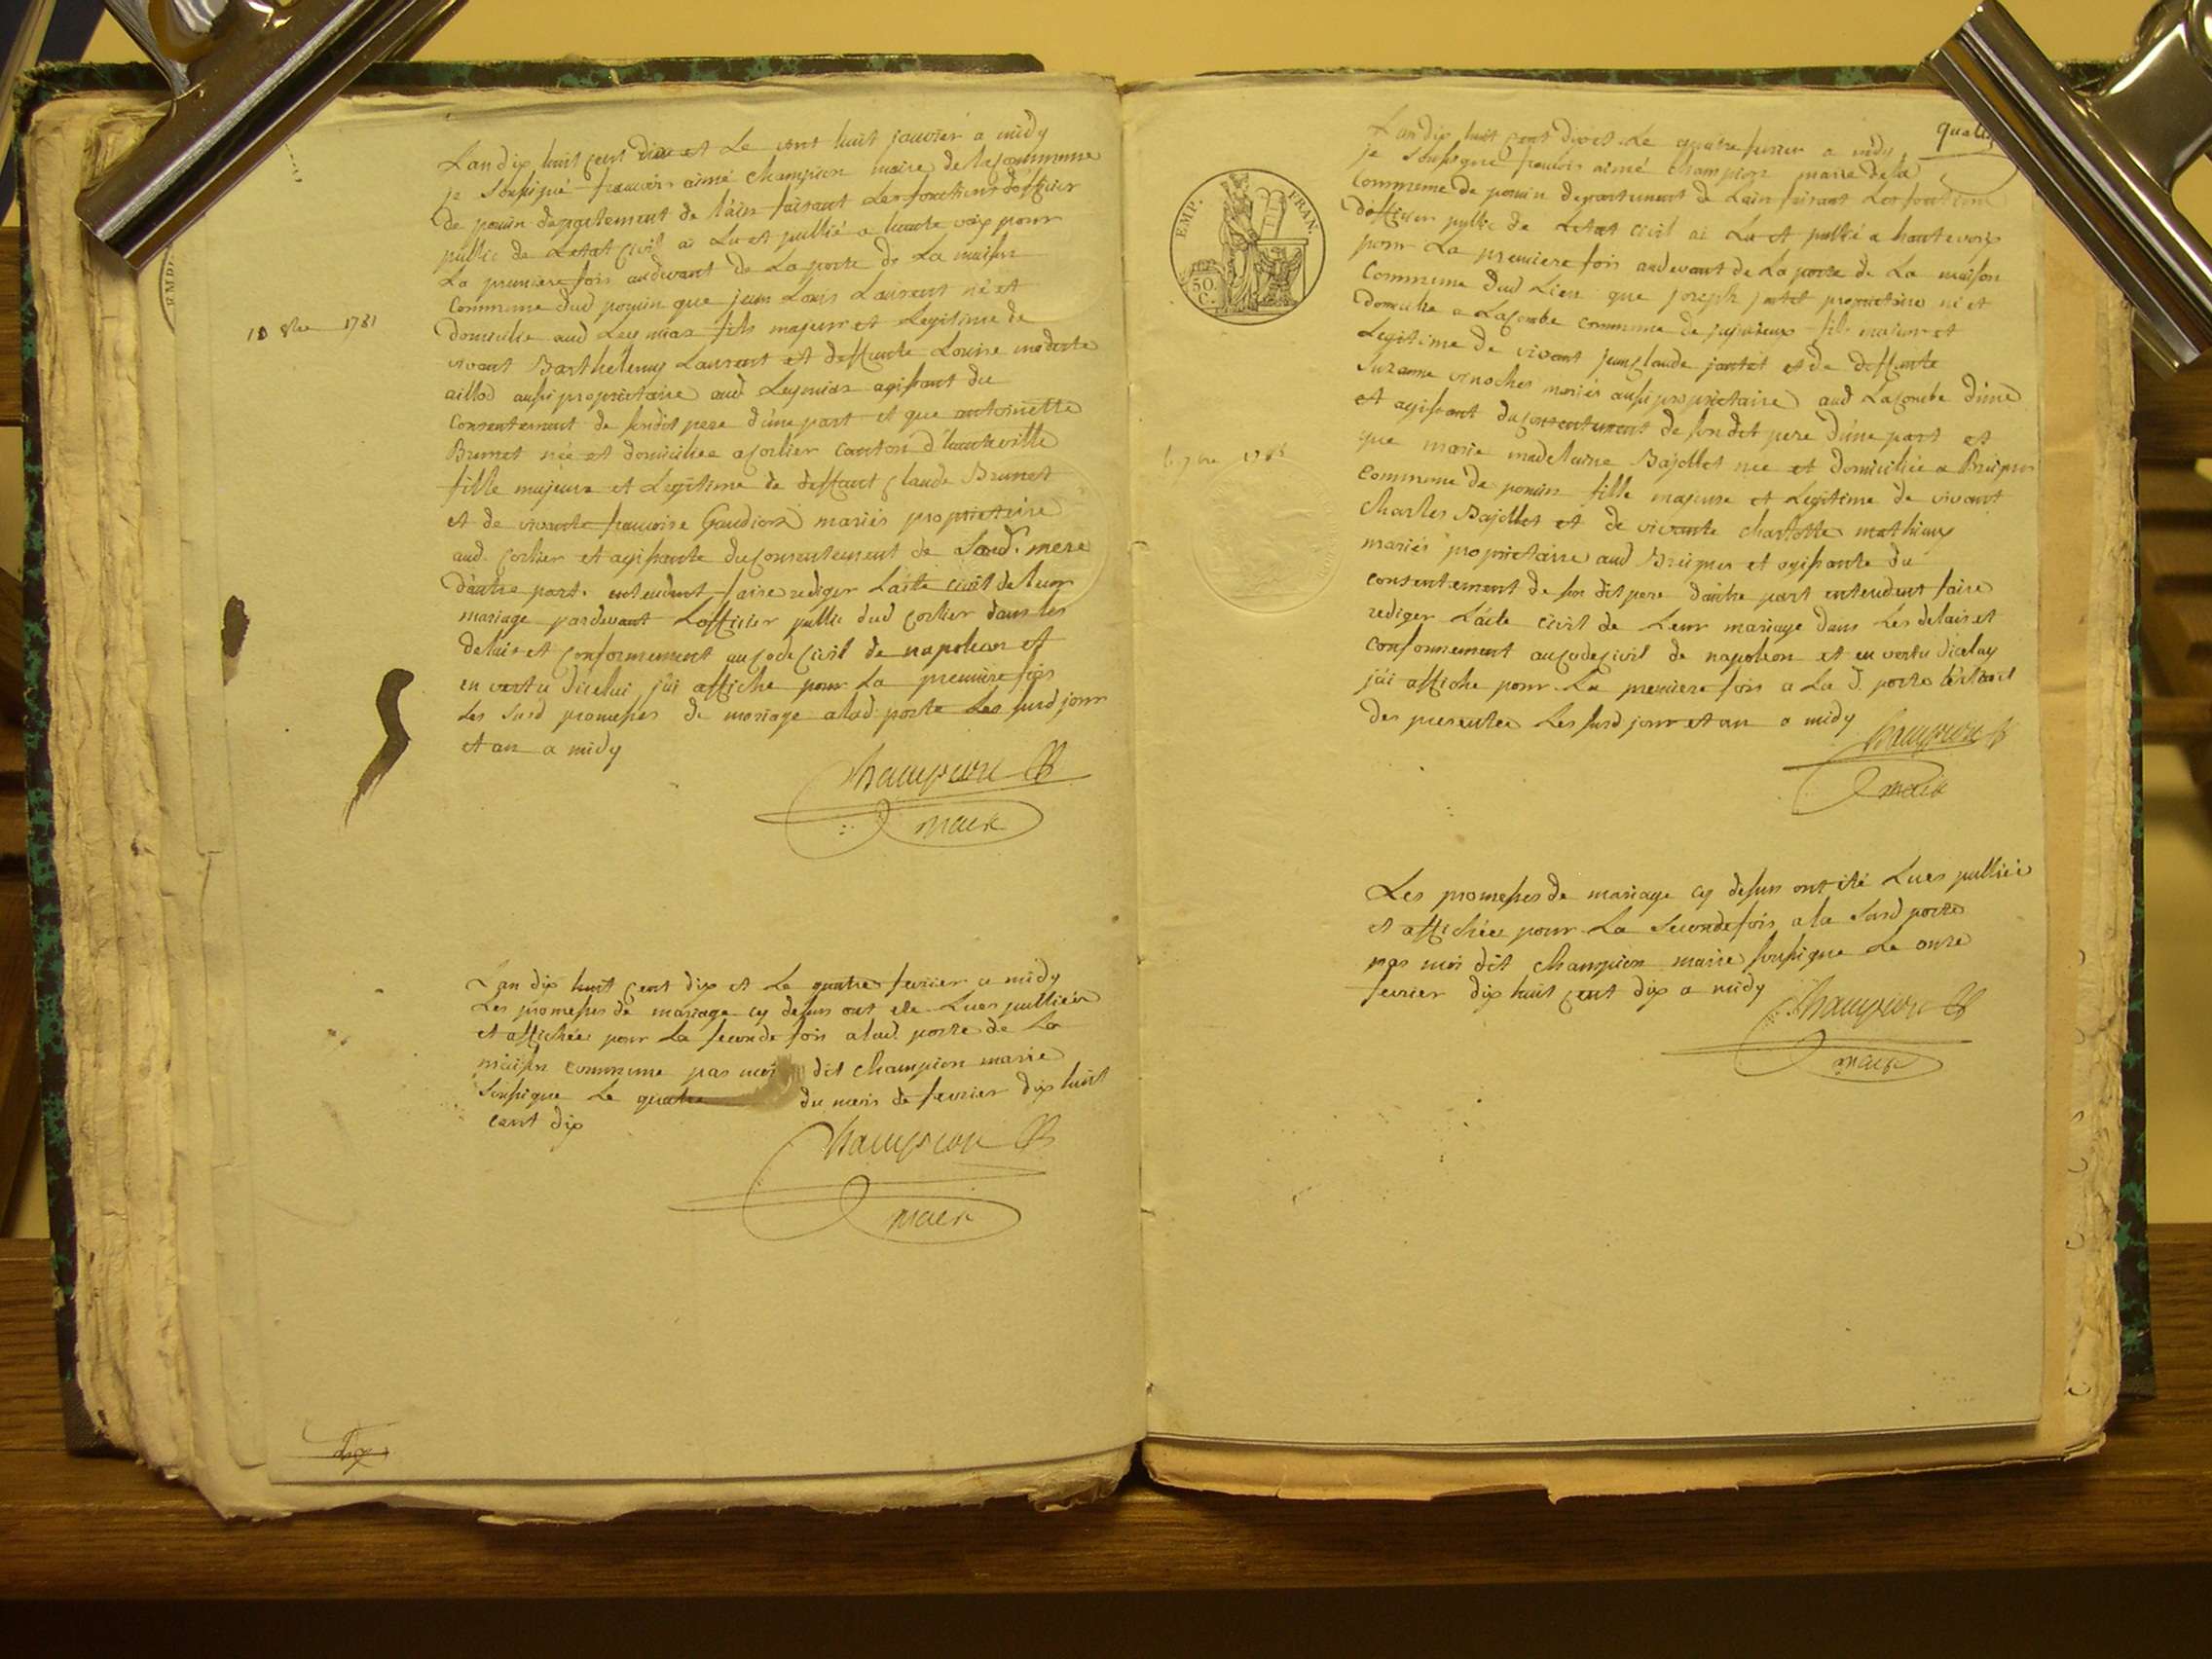 Lan dix huit cent dix et Le vint huit janvier a midy
je Soussigné francois aimé champion maire de la commune
de poncin departement de l'ain faisant Les fonctions d'officier
public de Letat civil ai Lu et publié a haute voix pour
La premiere fois audevant de La porte de La maison
Commune dud poncin que jean Louis Laurent né et
domicilié aud Leymiaz fils majeur et Legitime de
vivant Barthelemy Laurent et deffunte Louise modeste
aillod aussi proprietaire aud Leymiaz agissant du
Consentement de sondit pere d'une part et que antoinette
Brunet née et domiciliée a corlier canton d'hauteville
fille majeure et Legitime de deffunt claude Brunet
et de vivante francoise Gaudion mariés proprietaire
aud corlier et agissante du consentement de Sad. mere
d'autre part. entendent faire rediger L'acte civil de leur
mariage pardevant L'officier public dud corlier dans les
delais et conformement au code civil de napoleon et
en vertu d'icelui j'ai affiche pour La premiere fois
Les Susd promesses de mariage a lad. porte Les susd jour
et an a midy
Champion
maire
10 8bre 1781
Lan dix huit cent dix et Le quatre fevrier a midy
Les promesses de mariage cy dessus ont ete Lues publiées
et affichées pour La seconde fois a lad. porte de La
maison commune par moi dit champion maire
Soussigne Le quatre du mois de fevrier dix huit
cent dix
Champion
maire
dix
EMP. FRAN.
50.
C.
Lan dix huit cent dix et Le quatre fevrier a midy
je Soussigné francois aimé champion maire de la
Commune de poncin departement de Lain faisant Les fonctions
d'officier public de Letat civil ai Lu et publié a haute voix
pour La premiere fois audevant de La porte de La maison
Commune dud Lieu que joseph jantet proprietaire né et
domicilié a Lacombe commune de jujurieux fils majeur et
Legitime de vivant jean claude jantet et de deffunte
Suzanne mariés aussi proprietaire aud Lacombe d'une
et agissant du consentement de son dit pere d'une part et
que marie madelaine Bajollet née et domiciliée a Breignes
Commune de poncin fille majeure et Legitime de vivant
Charles Bajollet et de vivante charlotte mathieux
mariés proprietaire aud Breignes et agissante du
consentement de son dit pere d'autre part entendent faire
rediger L'acte civil de Leur mariage dans Les delais et
conformement au code civil de napoleon et en vertu d'iceluy
j'ai affiche pour La premiere fois a La d. porte L'extrait
des presentes Les susd jour et an a midy
Champion
maire
7bre
Les promesses de mariage cy dessus ont été Lues publiée
et affichées pour La Seconde fois a la Susd porte
par moi dit champion maire soussigne Le onze
fevrier dix huit cent dix a midy
Champion
maire